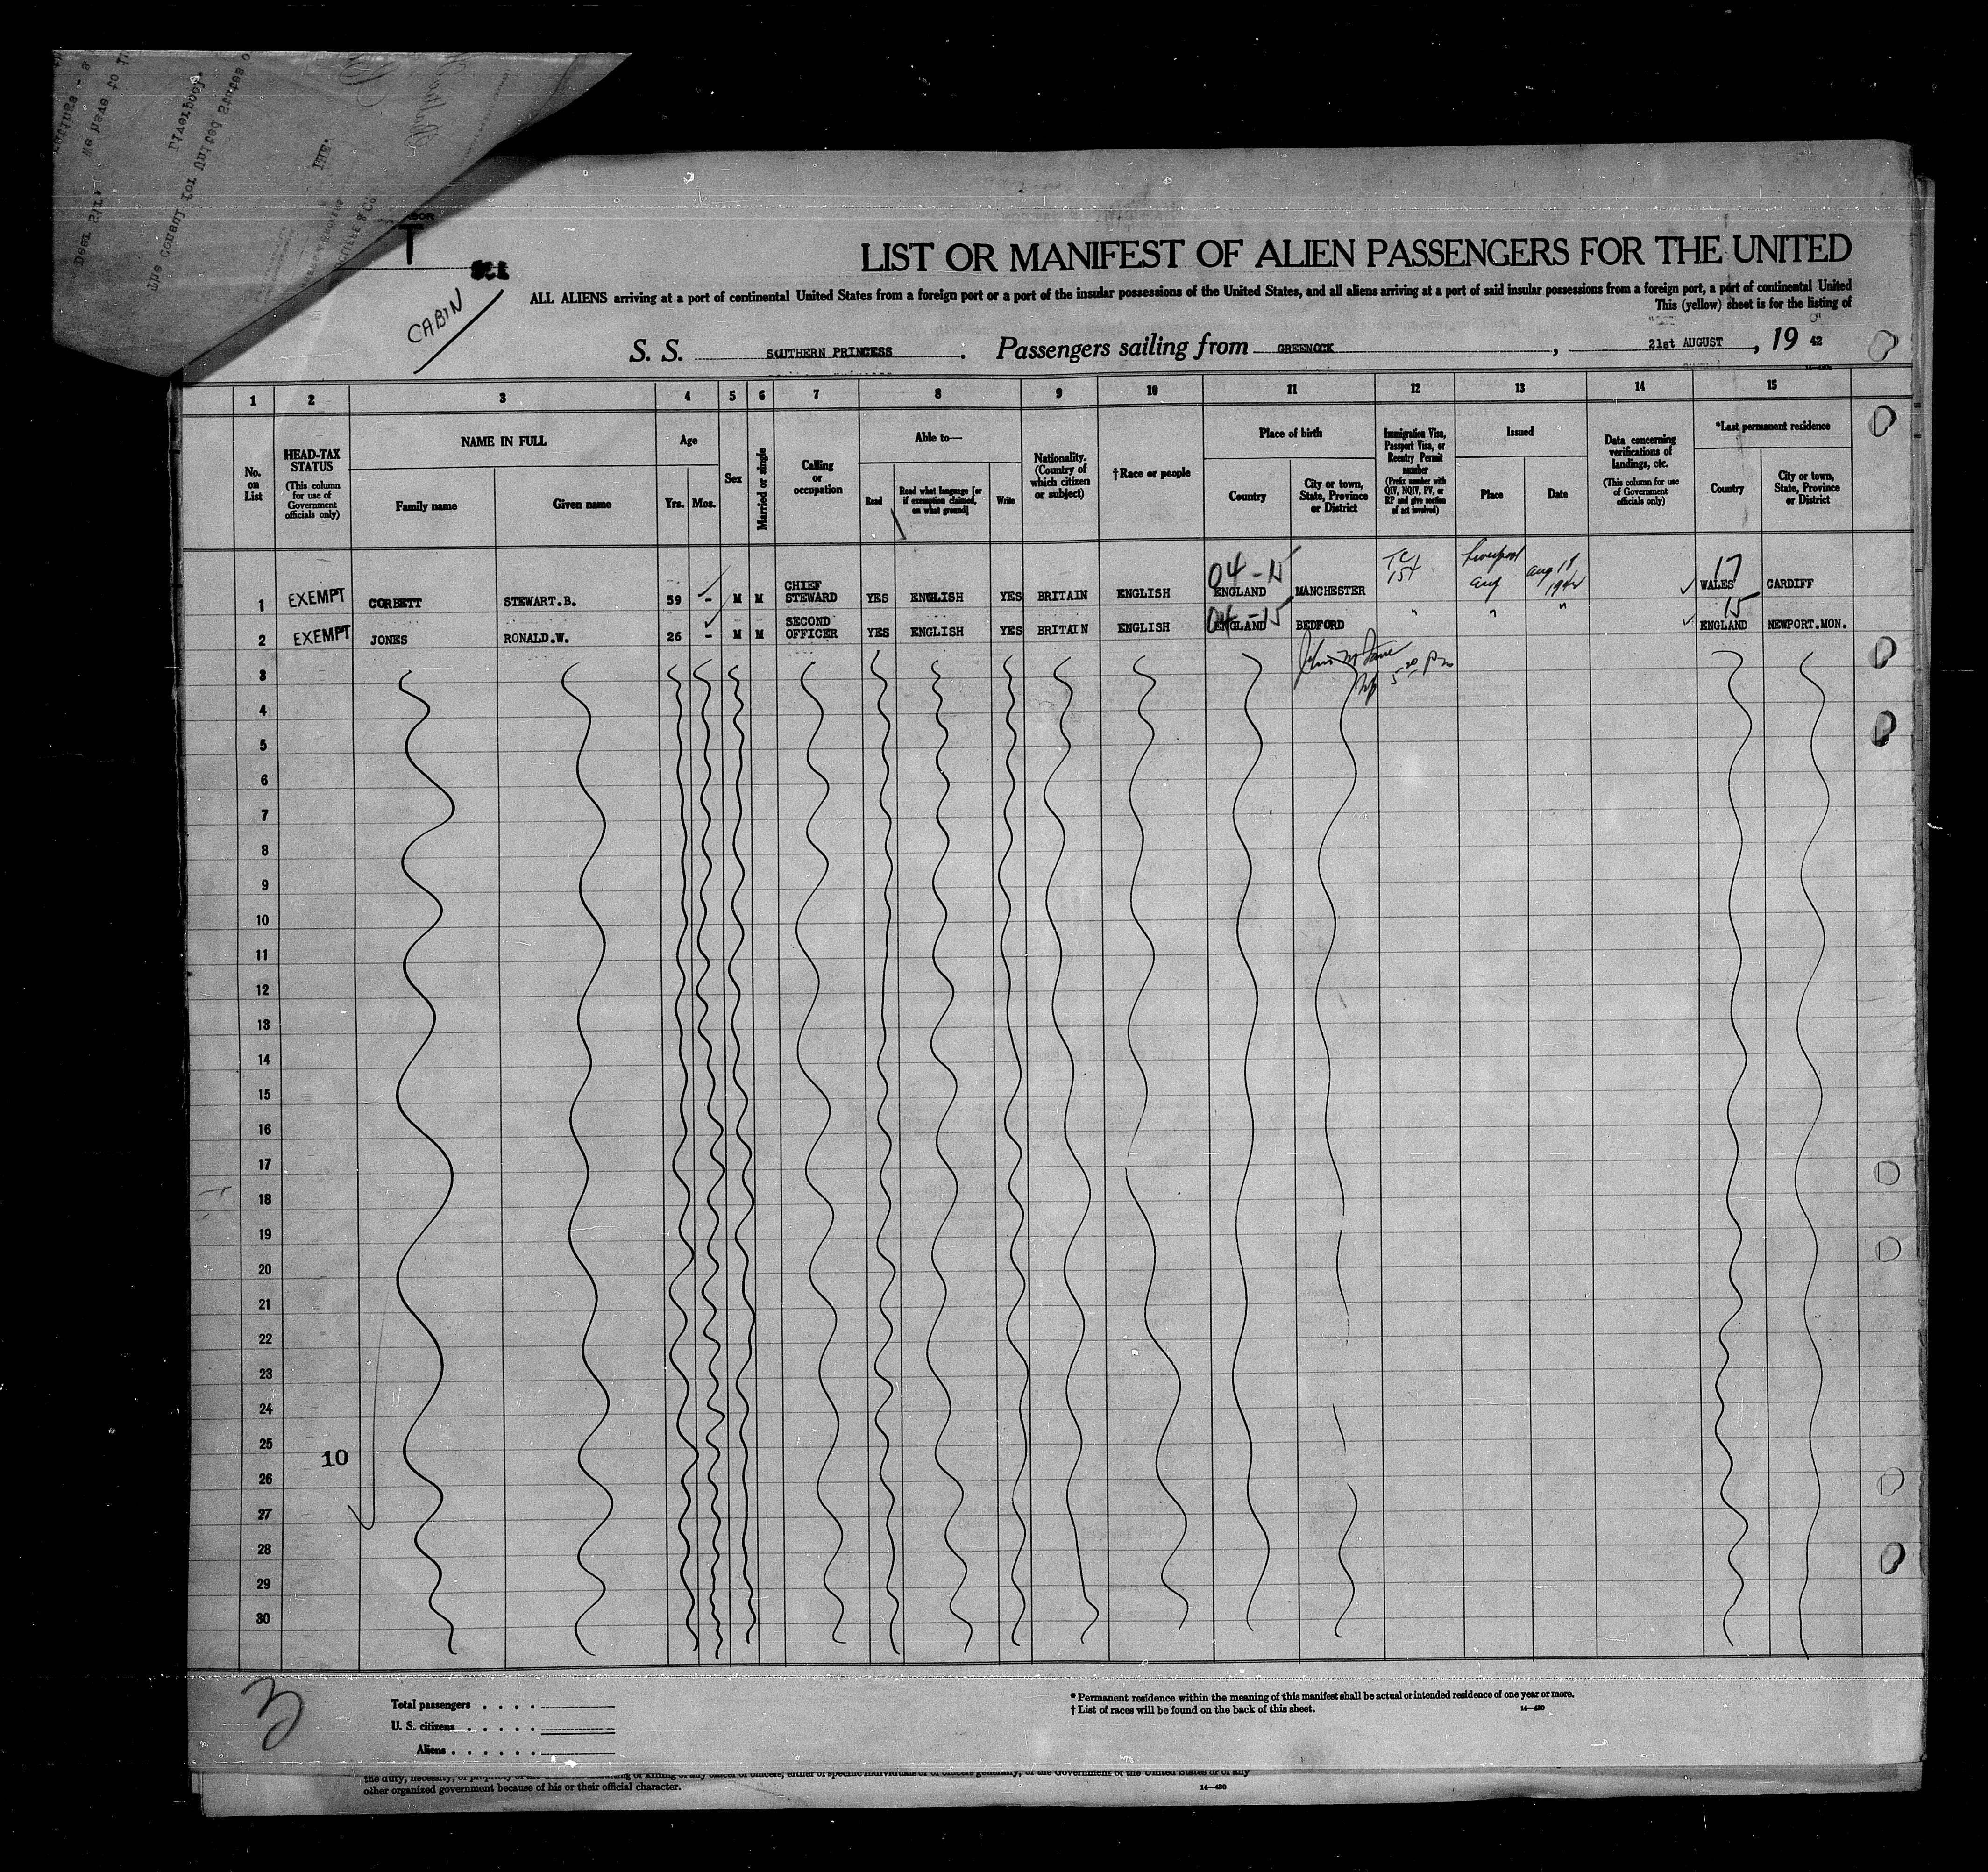 Dear Sir,
We have to
The Consul for United States o
Liverpool.
THE.
T
CABIN
LIST OR MANIFEST OF ALIEN PASSENGERS FOR THE UNITED
ALL ALIENS arriving at a port of continental United States from a foreign port or a port of the insular possessions of the United States, and all aliens arriving at a port of said insular possessions from a foreign port, a port of continental United
This (yellow) sheet is for the listing of
S. S. SOUTHERN PRINCESS . Passengers sailing from GREENOCK , 21st AUGUST , 19 42
1 2 3 4 5 6 7 8 9 10 11 12 13 14 15
No. on List
HEAD-TAX STATUS
(This column for use of Government officials only)
NAME IN FULL
Family name
Given name
Age
Yrs.
Mos.
Sex
Married or single
Calling or occupation
Able to—
Read
Read what language [or if exemption claimed, on what ground]
Write
Nationality. (Country of which citizen or subject)
†Race or people
Place of birth
Country
City or town, State, Province or District
Immigration Visa, Passport Visa, or Reentry Permit number
(Prefix number with QIV, NQIV, PV, or RP and give section of act involved)
Issued
Place
Date
Data concerning verifications of landings, etc.
(This column for use of Government officials only)
*Last permanent residence
Country
City or town, State, Province or District
1 EXEMPT CORBETT STEWART.B. 59 - M M CHIEF STEWARD YES ENGLISH YES BRITAIN ENGLISH 04-15 ENGLAND MANCHESTER Liverpool Aug 18 1942 17 WALES CARDIFF
2 EXEMPT JONES RONALD.W. 26 - M M SECOND OFFICER YES ENGLISH YES BRITAIN ENGLISH 04-15 ENGLAND BEDFORD " " " 15 ENGLAND NEWPORT.MON.
3
4
5
6
7
8
9
10
11
12
13
14
15
16
17
18
19
20
21
22
23
24
25
10
26
27
28
29
30
Total passengers . . . .
U. S. citizens . . . . .
Aliens . . . . . .
* Permanent residence within the meaning of this manifest shall be actual or intended residence of one year or more.
† List of races will be found on the back of this sheet.
14—430
other organized government because of his or their official character.
14—430